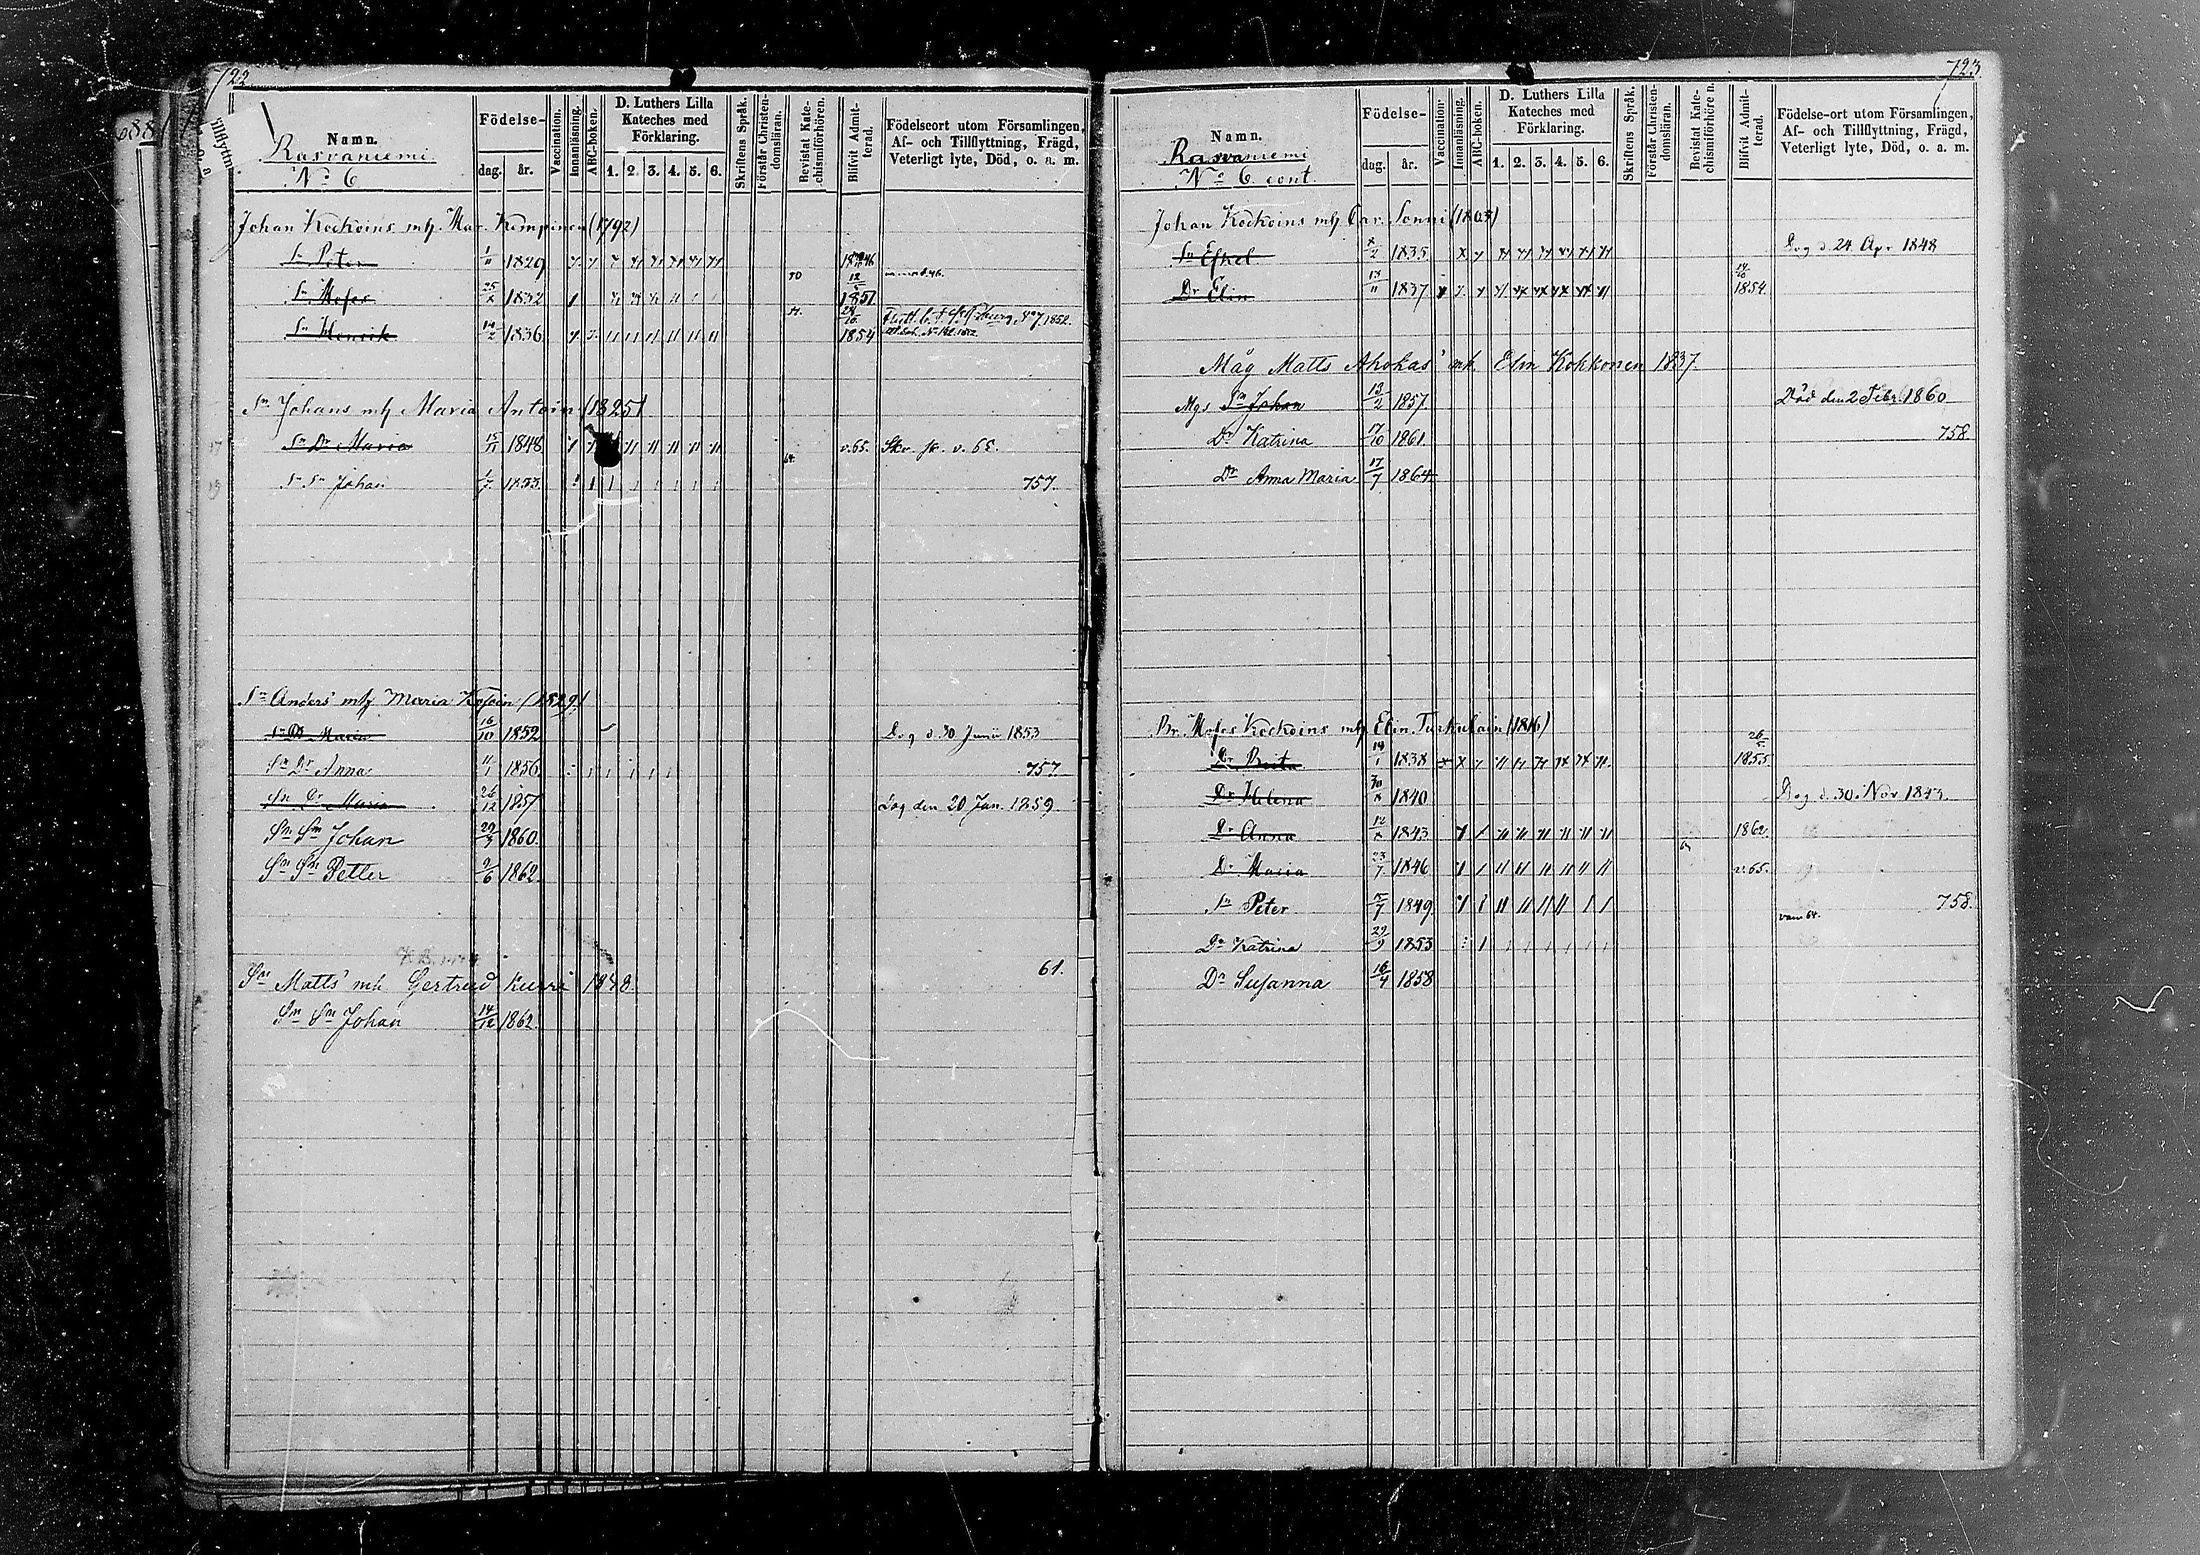 722
Namn.
Rasvaniemi
No 6
Födelse-
dag.
år.
Vaccination.
Innanläsning.
ABC-boken.
D. Luthers Lilla
Kateches med
Förklaring.
1. 2. 3. 4. 5. 6.
Skriftens Språk.
Förstår Christen-
domsläran.
Bevistat Kate-
chismiförhören.
Blifvit Admit-
terad.
Födelseort utom Församlingen,
Af- och Tillflyttning, Frägd,
Veterligt lyte, Död, o. a. m.
Johan Kockoins mh. Mar. Kempinen (1792)
Sn Peter 1/11 1829
Sn Moses 25/x 1832 1851
Sn Henrik 14/2 1836 1854
Sn Johans mh Maria Antoin (1825)
Sn Dr Maria 15/11 1848 v. 65. Skr. sk. v. 65.
Sn Sn Johan 1/7 1853 757.
Sn Anders mh Maria (1829)
Sn Dr Maria 16/10 1852 Dog d. 30 Junii 1853
Sn Dr Anna 11/1 1856 757
Sn Dr Maria 26/12 1857 Dog den 20 Jan. 1859
Sn Sn Johan 29/3 1860.
Sn Sn Petter 2/6 1862.
Sn Matts' mh Gertrud Kurri 1838. 61.
Sn Sn Johan 14/12 1862.
723
Namn.
Rasvaniemi
No 6. cont.
Födelse-
dag.
år.
Vaccination.
Innanläsning.
ABC-boken.
D. Luthers Lilla
Kateches med
Förklaring.
1. 2. 3. 4. 5. 6.
Skriftens Språk.
Förstår Christen-
domsläran.
Bevistat Kate-
chismiförhören.
Blifvit Admit-
terad.
Födelse-ort utom Församlingen,
Af- och Tillflyttning, Frägd,
Veterligt lyte, Död, o. a. m.
Johan Kockoins mh Car. Sonni (1803)
Sn Eskel x/2 1835 Dog d. 24. Apr 1848
Dr Elin 13/11 1837 14/10 1854
Måg Matts Ahokas' mh. Elin Kokkonen 1837.
Mgs Sn Johan 13/2 1857 Död den 2 Febr. 1860
Dr Katrina 17/10 1861 758.
Dr Anna Maria 17/7 1864
Br. Moses Kockoins mh Elin Turkulain (1816)
Dr Brita 19/1 1838 26/5 1855
Dr Helena 30/x 1840 Dog d. 30. Nov 1843.
Dr Anna 12/x 1843 1862.
Dr Maria 23/7 1846 v. 65.
Sn Peter 5/7 1849 758.
Dr Katrina 29/9 1853
Dr Susanna 16/4 1858